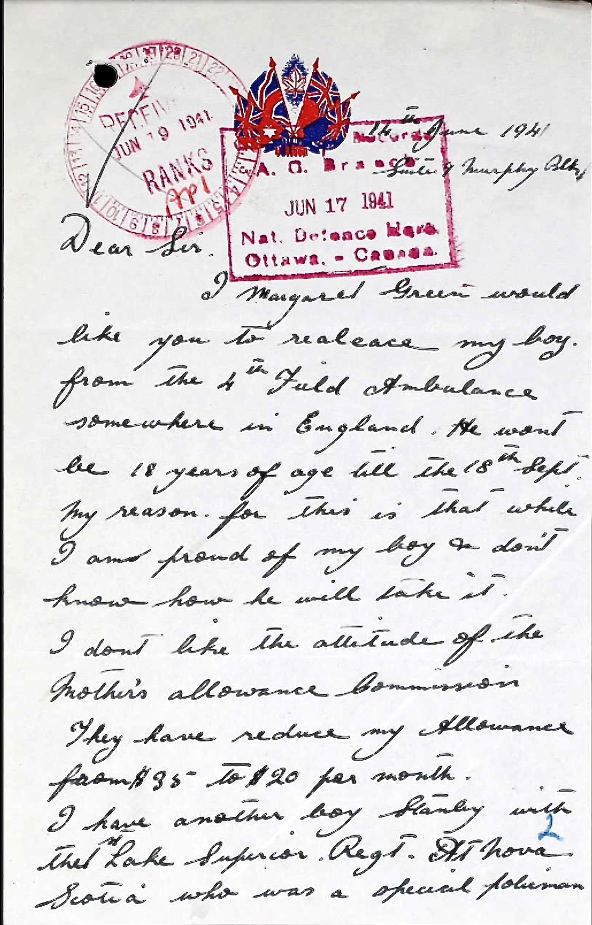 RECEIVED
JUN 19 1941
RANKS
API
Records
A. G. Branch
JUN 17 1941
Nat. Defence Hqrs.
Ottawa, - Canada.
14th June 1941
Suite 9 Murphy Blk,
Dear Sir.
I Margaret Green would
like you to realeace my boy.
from the 4th Field Ambulance
somewhere in England. He wont
be 18 years of age till the 18th Sept.
My reason. for this is that while
I am proud of my boy & don't
know how he will take it.
I dont like the attitude of the
Mother's allowance Commission
They have reduce my Allowance
from $35 to $20 per month.
I have another boy Stanley with
2
the 1st Lake Superior. Regt. At Nova
Scotia who was a special policman